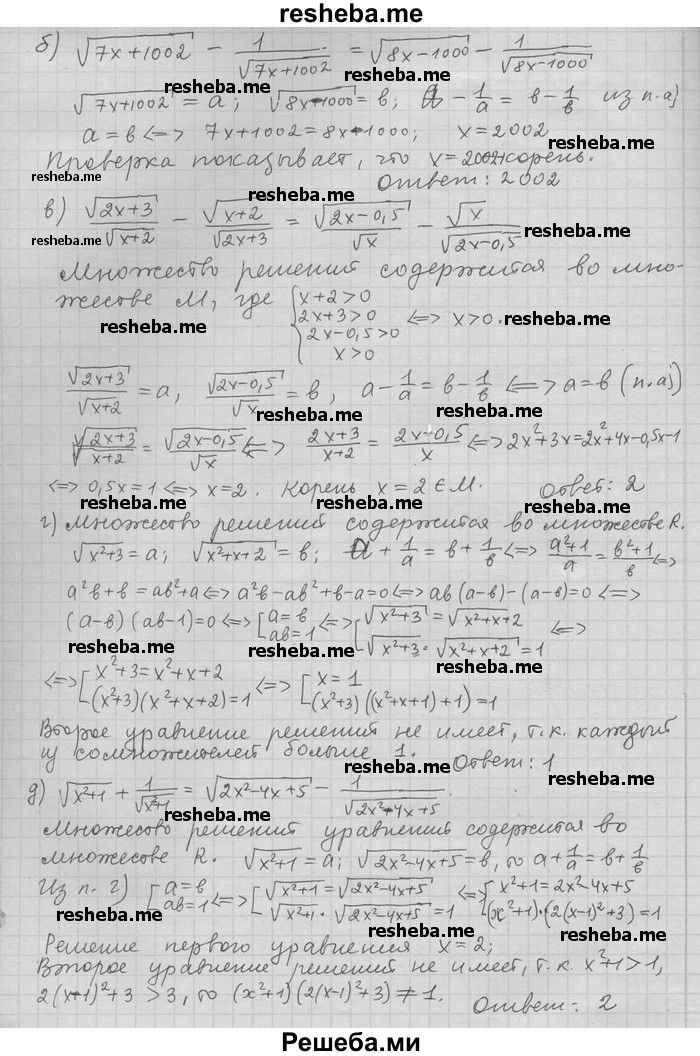 resheba.me
б) √(7x+1002) - 1/√(7x+1002) = √(8x-1000) - 1/√(8x-1000)
resheba.me resheba.me
√(7x+1002) = a; √(8x-1000) = в; a - 1/a = в - 1/в из п.а)
a = в <=> 7x+1002=8x-1000; x=2002
Проверка показывает, что x=2002 корень.
resheba.me resheba.me
Ответ: 2002
в) √(2x+3)/√(x+2) - √(x+2)/√(2x+3) = √(2x-0,5)/√x - √x/√(2x-0,5)
resheba.me resheba.me
Множество решений содержится во мно-
жестве М, где { x+2>0
2x+3>0
2x-0,5>0
x>0 <=> x>0.
resheba.me resheba.me
√(2x+3)/√(x+2) = a, √(2x-0,5)/√x = в, a - 1/a = в - 1/в <=> a=в (п.а))
resheba.me resheba.me
√((2x+3)/(x+2)) = √(2x-0,5)/√x <=> (2x+3)/(x+2) = (2x-0,5)/x <=> 2x²+3x=2x²+4x-0,5x-1
<=> 0,5x=1 <=> x=2. Корень x=2 ∈ М. Ответ: 2
resheba.me resheba.me
г) Множество решений содержится во множестве R.
√(x²+3) = a; √(x²+x+2) = в; a + 1/a = в + 1/в <=> (a²+1)/a = (в²+1)/в <=>
resheba.me resheba.me
a²в+в=aв²+a <=> a²в-aв²+в-a=0 <=> aв(a-в)-(a-в)=0 <=>
(a-в)(aв-1)=0 <=> [a=в
aв=1 <=> [√(x²+3) = √(x²+x+2)
√(x²+3)·√(x²+x+2) = 1 <=>
resheba.me resheba.me
<=> [x²+3=x²+x+2
(x²+3)(x²+x+2)=1 <=> [x=1
(x²+3)((x²+x+1)+1)=1
resheba.me resheba.me
Второе уравнение решений не имеет, т.к. каждый
из сомножителей больше 1. Ответ: 1
resheba.me resheba.me
д) √(x²+1) + 1/√(x²+1) = √(2x²-4x+5) - 1/√(2x²-4x+5).
Множество решений уравнений содержится во
resheba.me resheba.me
множестве R. √(x²+1) = a; √(2x²-4x+5) = в, то a+1/a = в+1/в
Из п. г) [a=в
aв=1 <=> [√(x²+1) = √(2x²-4x+5)
√(x²+1)·√(2x²-4x+5) = 1 <=> [x²+1=2x²-4x+5
(x²+1)·(2(x-1)²+3)=1
resheba.me resheba.me
Решение первого уравнения x=2;
Второе уравнение решений не имеет, т.к. x²+1>1,
resheba.me resheba.me
2(x-1)²+3>3, то (x²+1)(2(x-1)²+3)≠1.
Ответ: 2
Решеба.ми